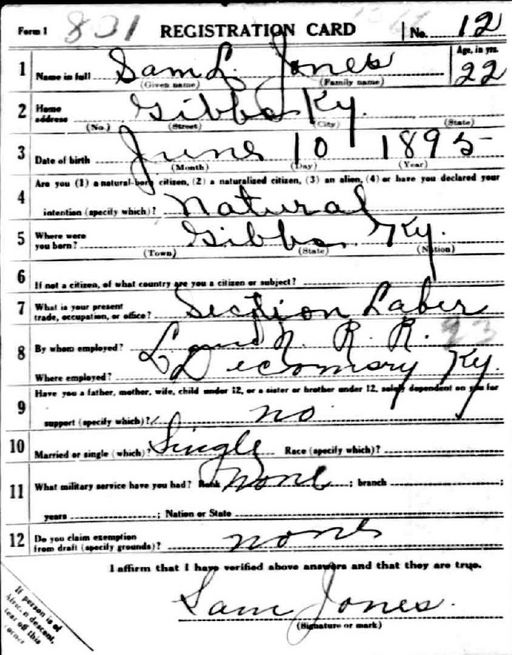 Form 1 801 REGISTRATION CARD No. 12
Age, in yrs.
1 Name in full Sam L Jones 22
(Given name) (Family name)
2 Home address Gibbs Ky.
(No.) (Street) (City) (State)
3 Date of birth June 10 1895
(Month) (Day) (Year)
4 Are you (1) a natural-born citizen, (2) a naturalized citizen, (3) an alien, (4) or have you declared your
intention (specify which)? natural
5 Where were you born? Gibbs Ky.
(Town) (State) (Nation)
6 If not a citizen, of what country are you a citizen or subject?
7 What is your present trade, occupation, or office? Section Laber
8 By whom employed? L and N. R. R. 93
Where employed? Ky
9 Have you a father, mother, wife, child under 12, or a sister or brother under 12, solely dependent on you for
support (specify which)? no
10 Married or single (which)? Single Race (specify which)?
11 What military service have you had? Rank none ; branch ;
years ; Nation or State
12 Do you claim exemption from draft (specify grounds)? none
I affirm that I have verified above answers and that they are true.
Sam Jones.
(Signature or mark)
If person is of
African descent,
tear off this
corner